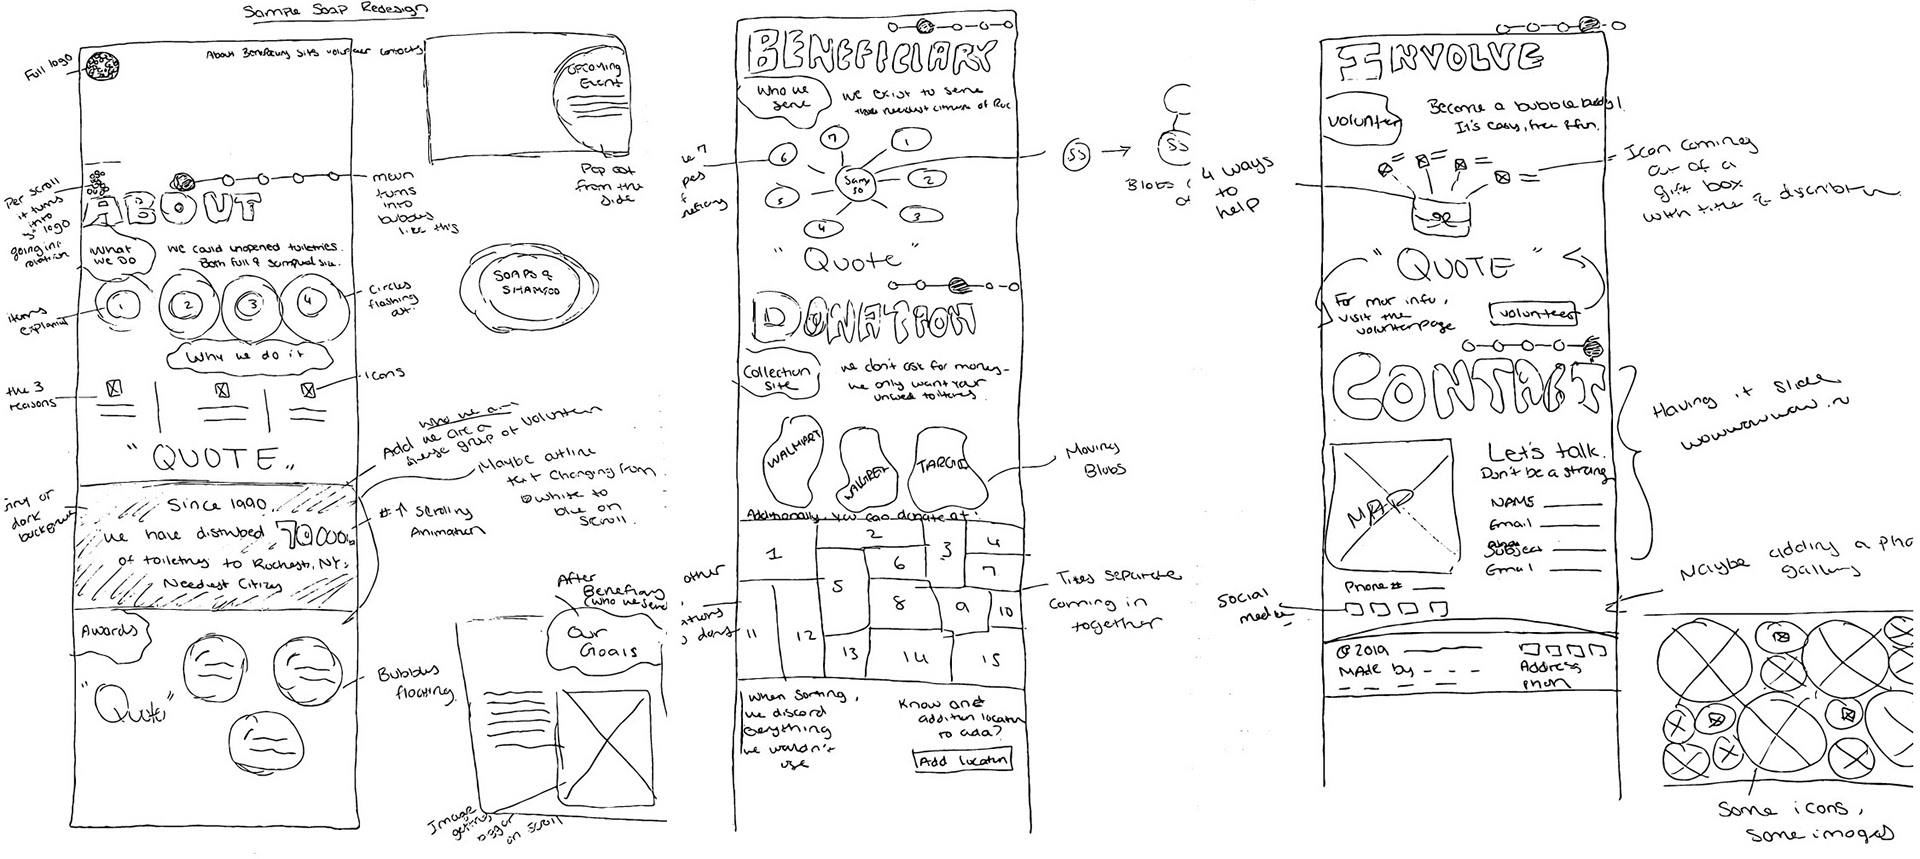 Sample Soap Redesign
Full logo
About Beneficiary Sits Volunteer Contacts
Upcoming
Event
Pop out
from the
side
Per scroll
it turns
into
logo
going in
rotation
menu
turns
into
bubbles
like this
ABOUT
What
We Do
we could unopened toiletries.
Both full & sampual size.
1
2
3
4
Circles
flashing
out.
items
explained
SOAPS &
SHAMPOO
Why we do it
the 3
reasons
icons
"QUOTE"
Who we are
Add we are a
group of volunteers
Maybe outline
text changing from
white to
blue on
scroll.
or
dark
background
Since 1990
we have distrubed 70,000 lb
of toiletries to Rochester, NY's
Neediest Citizens
# ↑ scrolling
Animation
Awards
"Quote"
Bubbles
floating
After
Beneficiary
(who we serve)
Our
Goals
Image
getting
bigger
on scroll
BENEFICIARY
Who we
serve
we exist to serve
those neediest citizens of Roc
7
6
1
5
2
4
3
SS
SS
Blobs
"Quote"
DONATION
Collection
Site
we don't ask for money-
we only want your
unused toiletries.
WALMART
WALGREEN
TARGET
Moving
Blobs
Additionally, you can donate at:
1
2
3
4
5
6
7
8
9
10
11
12
13
14
15
other
Tiles separate
coming in
together
When sorting,
we discard
everything
we wouldn't
use
Know one
addition location
to add?
Add location
INVOLVE
Volunteer
Become a bubble buddy!
It's easy, free & fun.
4 ways
to
help
Icon coming
out of a
gift box
with title & discribtion
"QUOTE"
For mor info,
visit the
volunteer page
Volunteer
CONTACT
Having it slide
wowwowow
MAP
Let's talk.
Don't be a strang
NAME
Email
Subject
Email
Phone #
Social
media
Maybe adding a pho
gallery
© 2019
Made by
Address
phon
Some icons,
some images